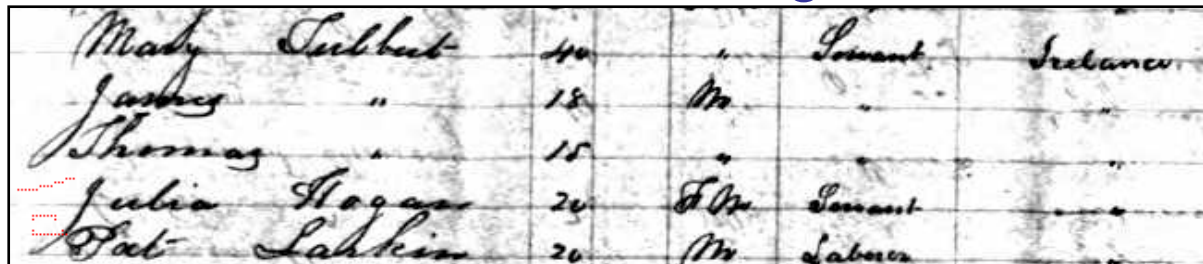 Mary 40 " Servant Ireland
James " 18 M " "
Thomas " 15 " " "
Julia Hogan 20 Servant "
Pat Larkin 20 M Laborer "